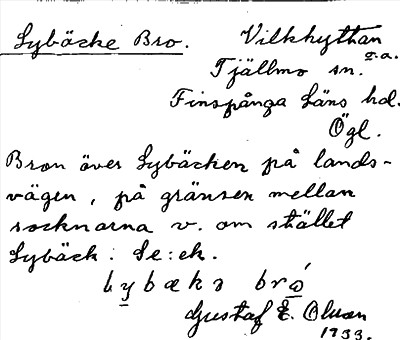 Lybäcke Bro. Vilkhyttan
r.a.
Tjällmo sn.
Finspånga Läns hd.
Ögl.
Bron över Lybäcken på lands-
vägen, på gränsen mellan
socknarna v. om stället
Lybäck. Se: ek.
Gustaf E. Olsson
1933.